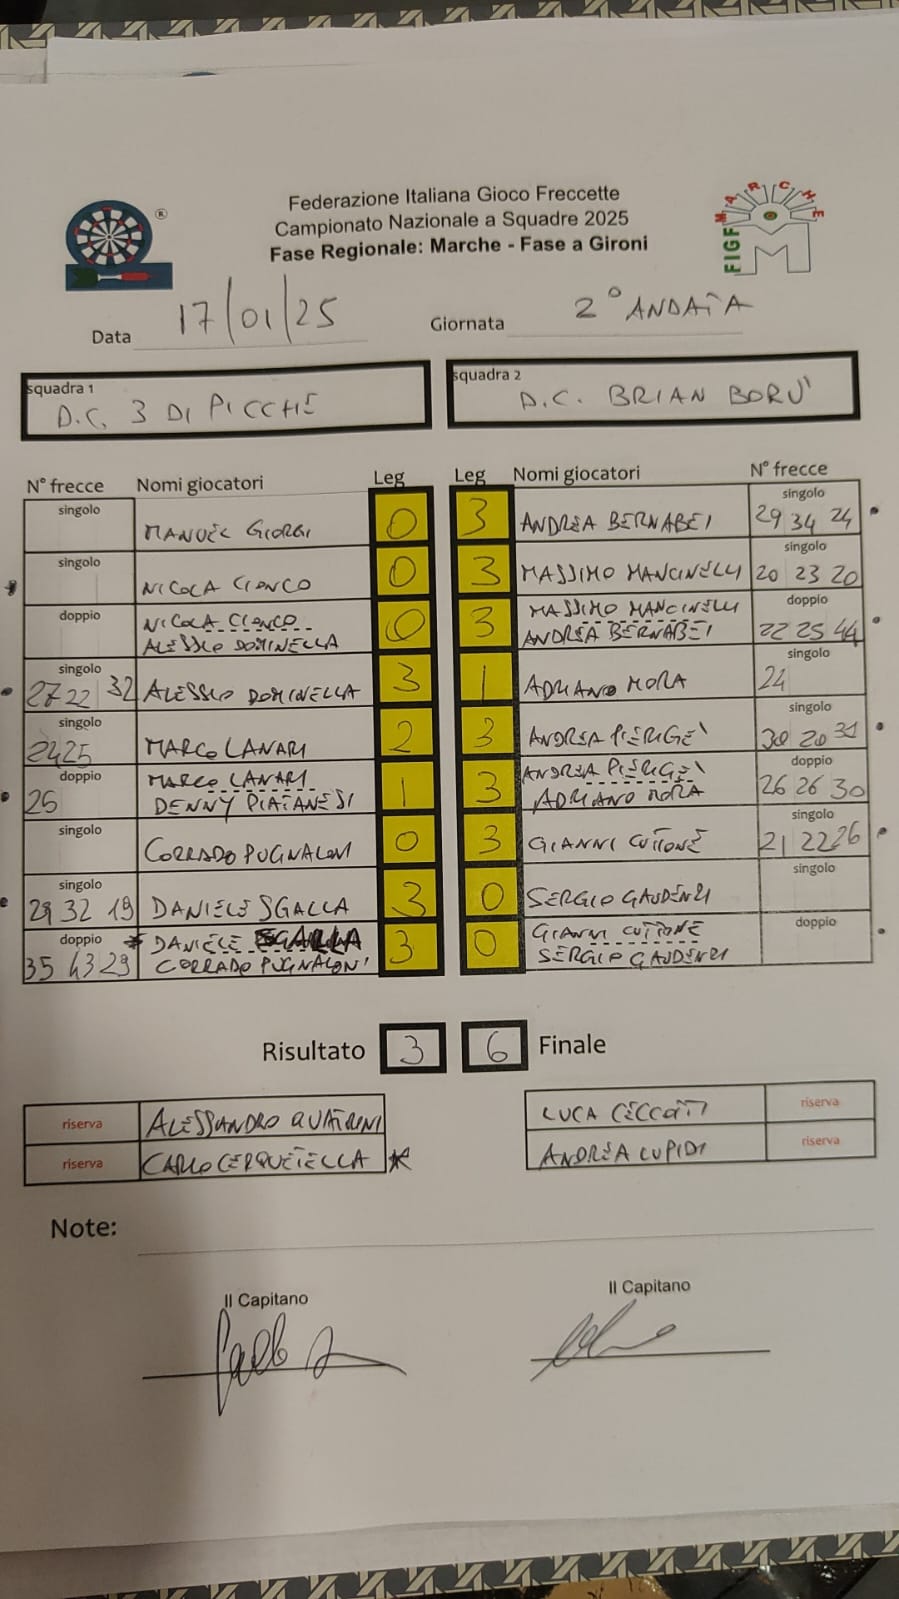 ®
Federazione Italiana Gioco Freccette
Campionato Nazionale a Squadre 2025
Fase Regionale: Marche - Fase a Gironi
FIGF MARCHE M
Data 17/01/25 Giornata 2° ANDATA
squadra 1 D.C. 3 DI PICCHE
squadra 2 D.C. BRIAN BORU'
N° frecce Nomi giocatori Leg Leg Nomi giocatori N° frecce
singolo MANUEL GIORGI 0 3 ANDREA BERNABEI singolo 29 34 24
singolo NICOLA CIONCO 0 3 MASSIMO MANCINELLI singolo 20 23 20
doppio NICOLA CIONCO 0 3 MASSIMO MANCINELLI doppio
ALESSIO DOMINELLA ANDREA BERNABEI 22 25 44
singolo 27 22 32 ALESSIO DOMINELLA 3 1 ADRIANO MORA singolo 24
singolo 24 25 MARCO LANARI 2 3 ANDREA PIERIGE' singolo 30 20 31
doppio MARCO LANARI 1 3 ANDREA PIERIGE' doppio
25 DENNY PIATANESI ADRIANO MORA 26 26 30
singolo CORRADO PUGNALONI 0 3 GIANNI CUTTONE singolo 21 22 26
singolo 29 32 19 DANIELE SGALLA 3 0 SERGIO GAUDENZI singolo
doppio * DANIELE SGALLA 3 0 GIANNI CUTTONE doppio
35 43 29 CORRADO PUGNALONI SERGIO GAUDENZI
Risultato 3 6 Finale
riserva ALESSANDRO QUATRINI LUCA CECCOTTI riserva
riserva CARLO CERQUETELLA * ANDREA LUPIDI riserva
Note:
Il Capitano Il Capitano